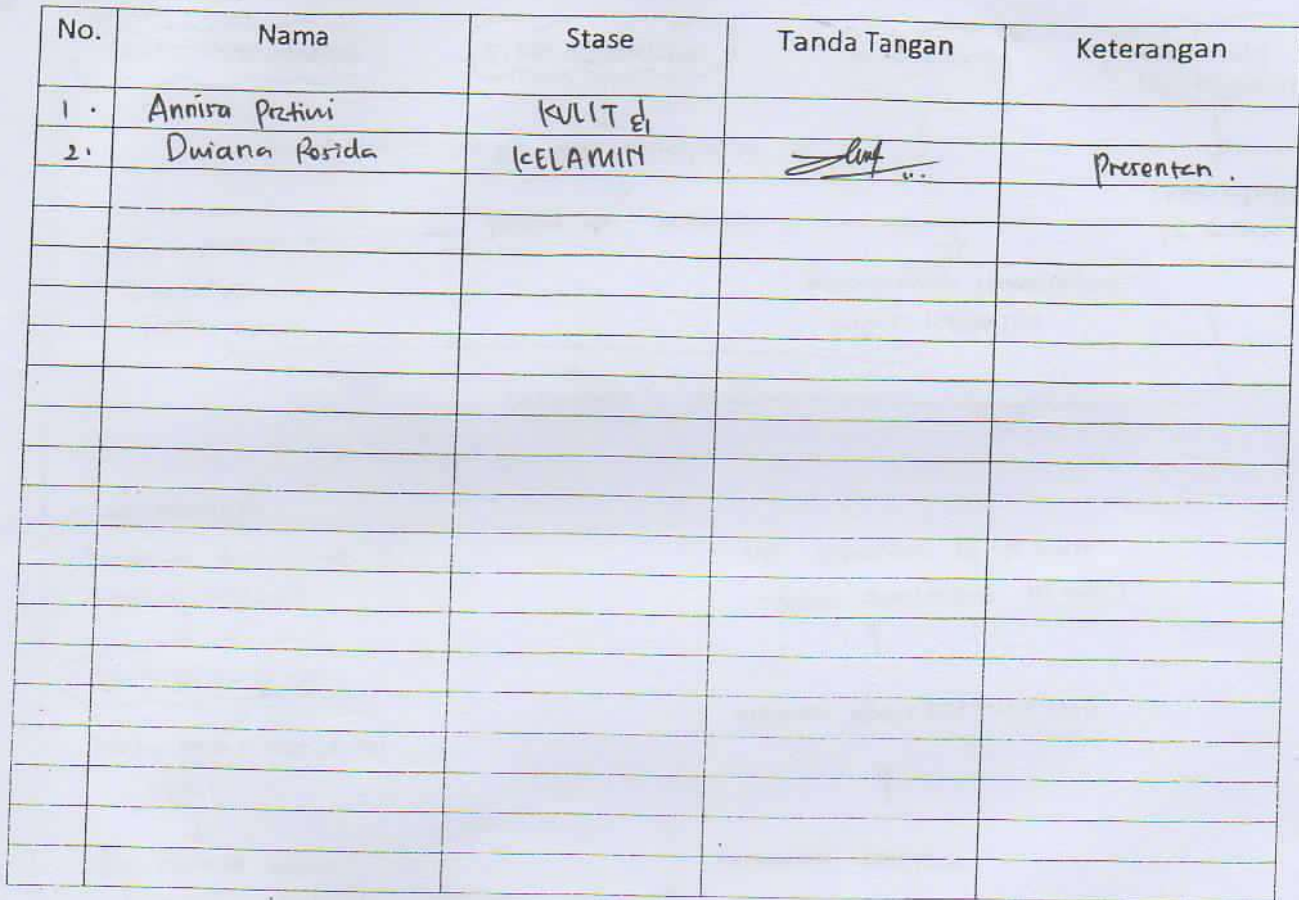 No. Nama Stase Tanda Tangan Keterangan
1. Annisa Pratiwi KULIT &
2. Dwiana Rosida KELAMIN Presentan.